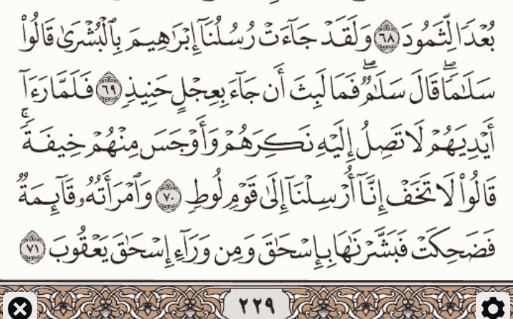 بُعْدًا لِّثَمُودَ ٦٨ وَلَقَدْ جَآءَتْ رُسُلُنَآ إِبْرَٰهِيمَ بِٱلْبُشْرَىٰ قَالُوا۟
سَلَٰمًا ۖ قَالَ سَلَٰمٌ ۖ فَمَا لَبِثَ أَن جَآءَ بِعِجْلٍ حَنِيذٍ ٦٩ فَلَمَّا رَءَآ
أَيْدِيَهُمْ لَا تَصِلُ إِلَيْهِ نَكِرَهُمْ وَأَوْجَسَ مِنْهُمْ خِيفَةً ۚ
قَالُوا۟ لَا تَخَفْ إِنَّآ أُرْسِلْنَآ إِلَىٰ قَوْمِ لُوطٍ ٧٠ وَٱمْرَأَتُهُۥ قَآئِمَةٌ
فَضَحِكَتْ فَبَشَّرْنَٰهَا بِإِسْحَٰقَ وَمِن وَرَآءِ إِسْحَٰقَ يَعْقُوبَ ٧١
٢٢٩